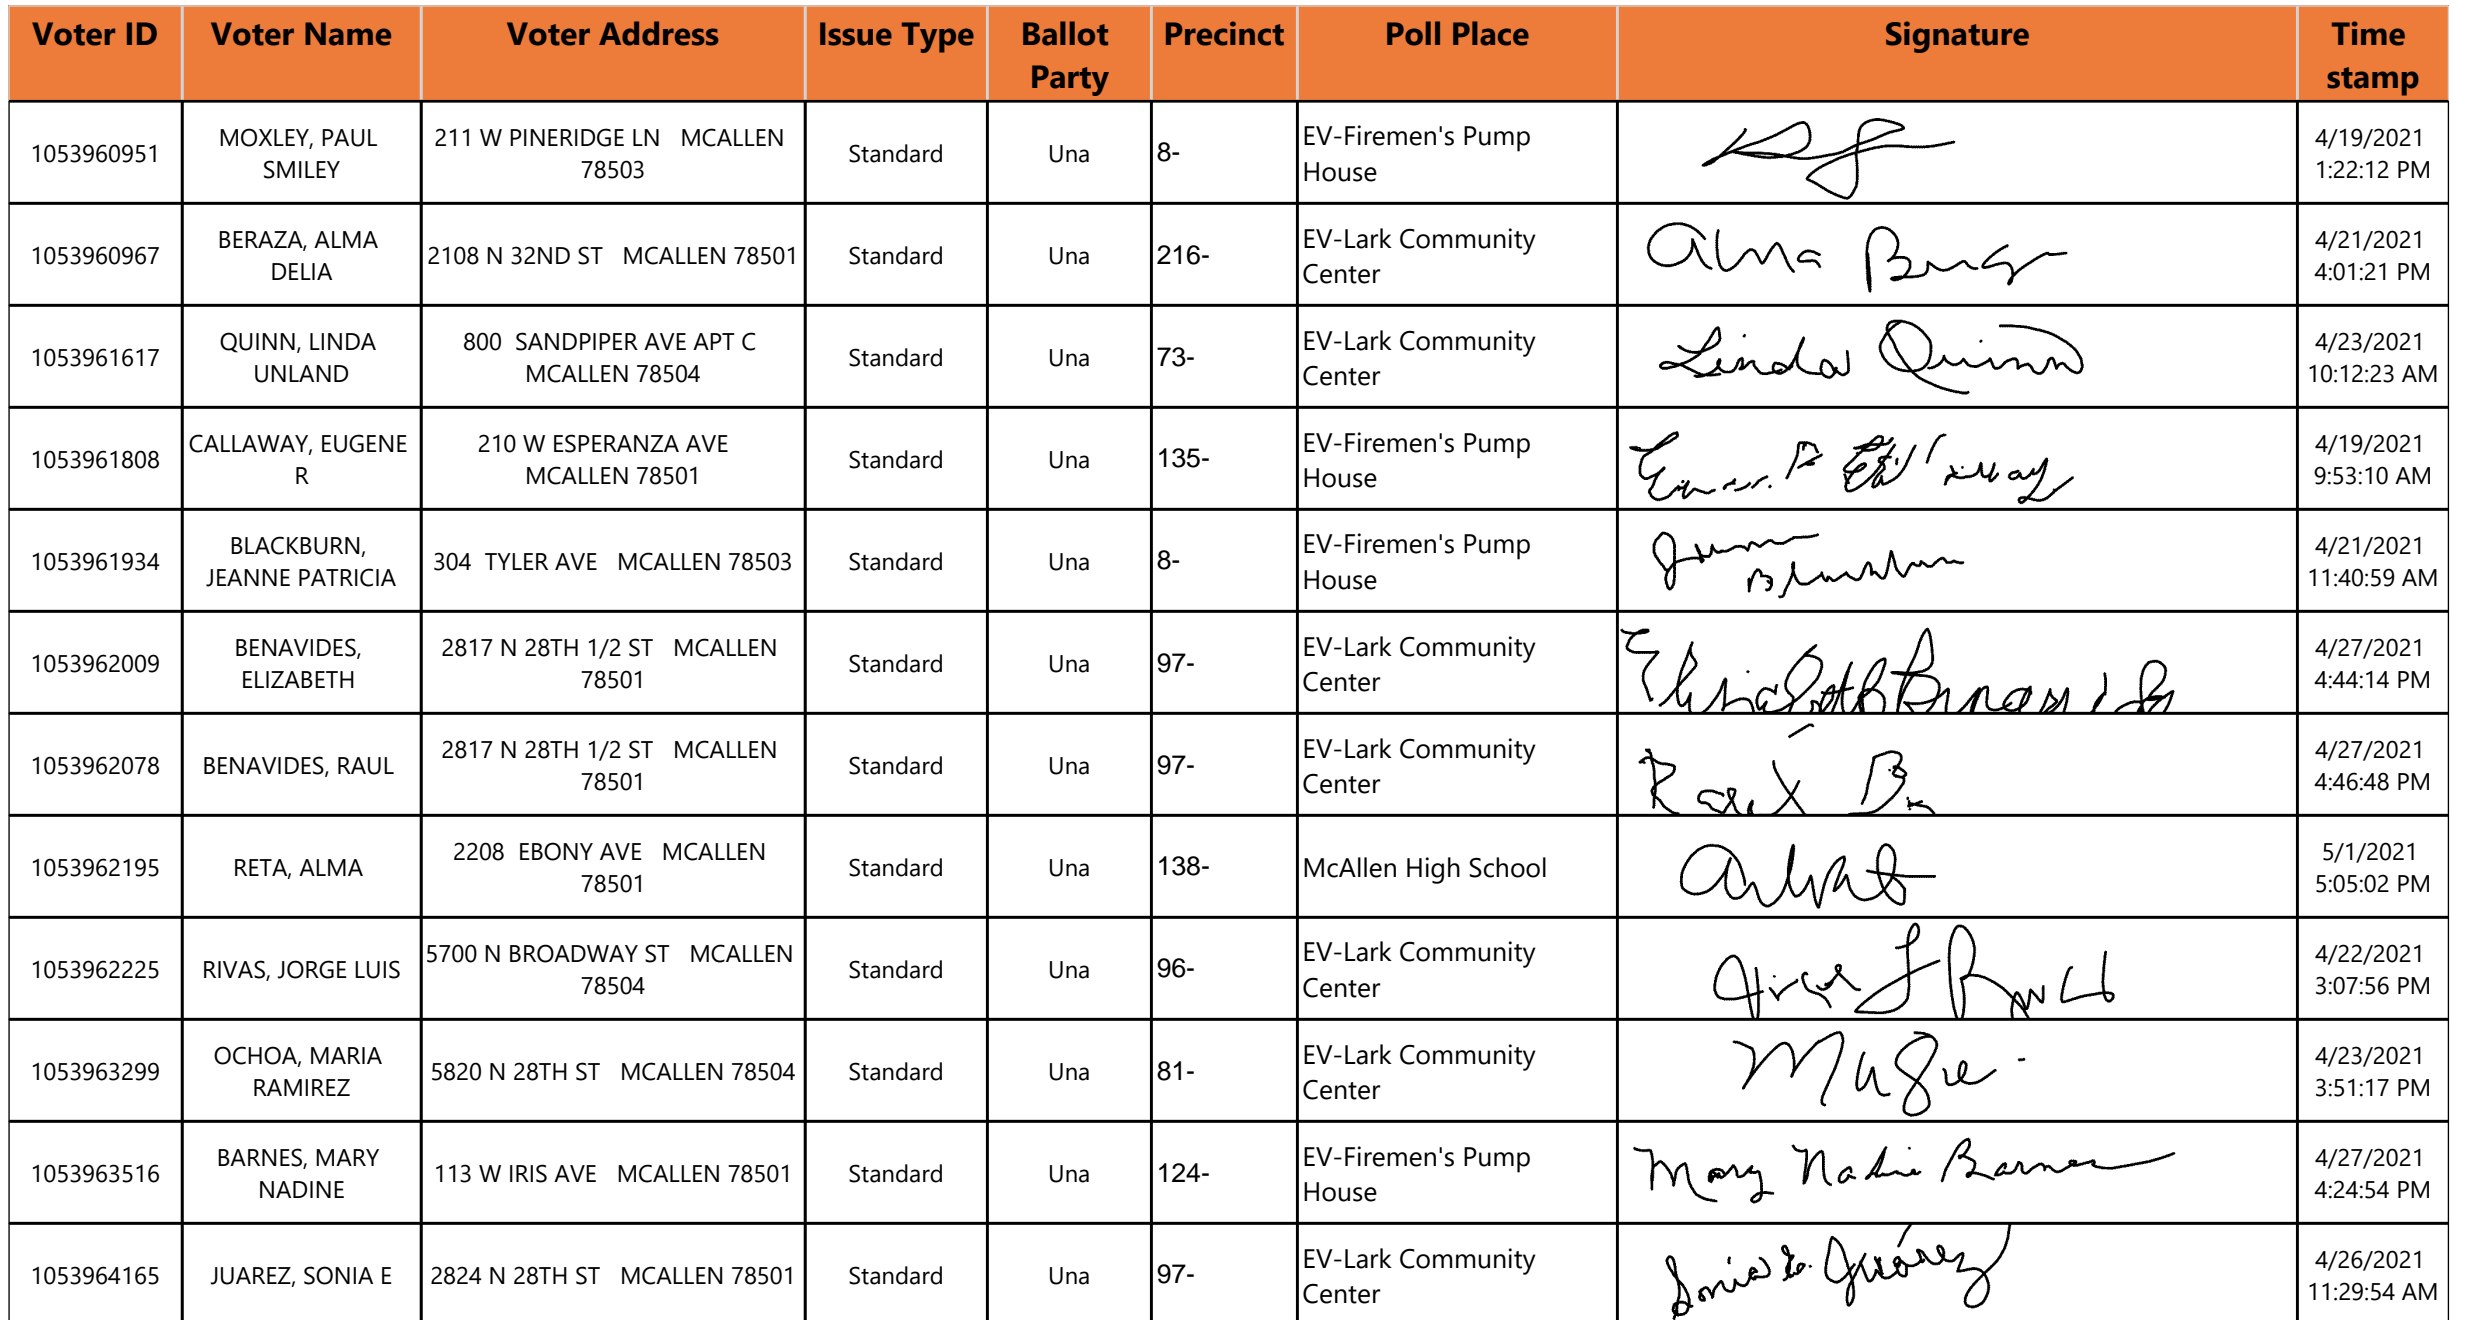 Voter ID Voter Name Voter Address Issue Type Ballot Party Precinct Poll Place Signature Time stamp
1053960951 MOXLEY, PAUL SMILEY 211 W PINERIDGE LN MCALLEN 78503 Standard Una 8- EV-Firemen's Pump House 4/19/2021 1:22:12 PM
1053960967 BERAZA, ALMA DELIA 2108 N 32ND ST MCALLEN 78501 Standard Una 216- EV-Lark Community Center Alma 4/21/2021 4:01:21 PM
1053961617 QUINN, LINDA UNLAND 800 SANDPIPER AVE APT C MCALLEN 78504 Standard Una 73- EV-Lark Community Center Linda Quinn 4/23/2021 10:12:23 AM
1053961808 CALLAWAY, EUGENE R 210 W ESPERANZA AVE MCALLEN 78501 Standard Una 135- EV-Firemen's Pump House 4/19/2021 9:53:10 AM
1053961934 BLACKBURN, JEANNE PATRICIA 304 TYLER AVE MCALLEN 78503 Standard Una 8- EV-Firemen's Pump House 4/21/2021 11:40:59 AM
1053962009 BENAVIDES, ELIZABETH 2817 N 28TH 1/2 ST MCALLEN 78501 Standard Una 97- EV-Lark Community Center Elizabeth Benavides 4/27/2021 4:44:14 PM
1053962078 BENAVIDES, RAUL 2817 N 28TH 1/2 ST MCALLEN 78501 Standard Una 97- EV-Lark Community Center 4/27/2021 4:46:48 PM
1053962195 RETA, ALMA 2208 EBONY AVE MCALLEN 78501 Standard Una 138- McAllen High School 5/1/2021 5:05:02 PM
1053962225 RIVAS, JORGE LUIS 5700 N BROADWAY ST MCALLEN 78504 Standard Una 96- EV-Lark Community Center 4/22/2021 3:07:56 PM
1053963299 OCHOA, MARIA RAMIREZ 5820 N 28TH ST MCALLEN 78504 Standard Una 81- EV-Lark Community Center 4/23/2021 3:51:17 PM
1053963516 BARNES, MARY NADINE 113 W IRIS AVE MCALLEN 78501 Standard Una 124- EV-Firemen's Pump House Mary Nadine Barnes 4/27/2021 4:24:54 PM
1053964165 JUAREZ, SONIA E 2824 N 28TH ST MCALLEN 78501 Standard Una 97- EV-Lark Community Center Sonia E. Juárez 4/26/2021 11:29:54 AM